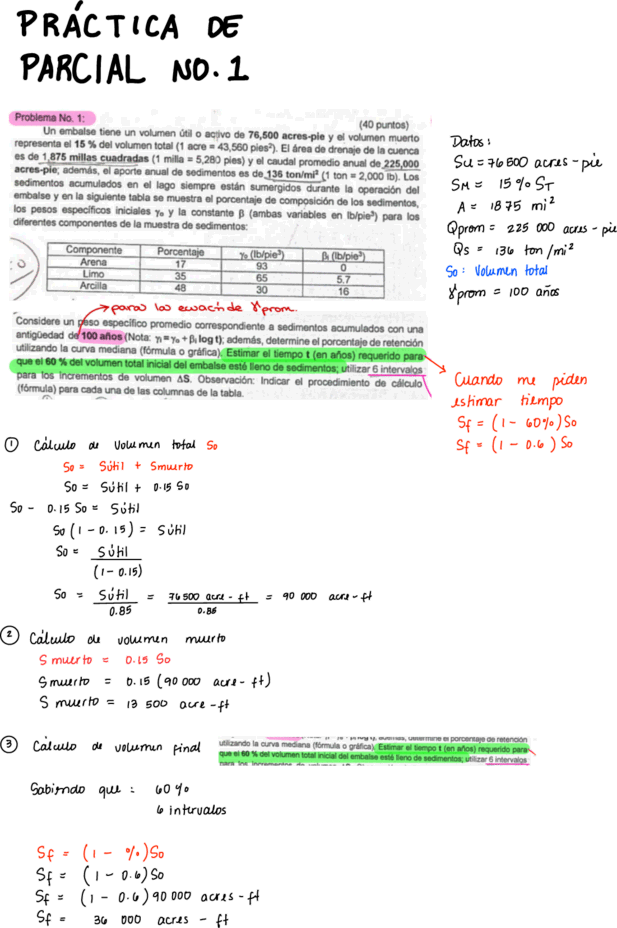 PRÁCTICA DE
PARCIAL NO.1
Problema No. 1:
(40 puntos)
Un embalse tiene un volumen útil o activo de 76,500 acres-pie y el volumen muerto
representa el 15 % del volumen total (1 acre = 43,560 pies²). El área de drenaje de la cuenca
es de 1,875 millas cuadradas (1 milla = 5,280 pies) y el caudal promedio anual de 225,000
acres-pie; además, el aporte anual de sedimentos es de 136 ton/mi² (1 ton = 2,000 lb). Los
sedimentos acumulados en el lago siempre están sumergidos durante la operación del
embalse y en la siguiente tabla se muestra el porcentaje de composición de los sedimentos,
los pesos específicos iniciales γₒ y la constante β (ambas variables en lb/pie³) para los
diferentes componentes de la muestra de sedimentos:
Componente Porcentaje γₒ (lb/pie³) βᵢ (lb/pie³)
Arena 17 93 0
Limo 35 65 5.7
Arcilla 48 30 16
→ para la ecuación de γprom.
Considere un peso específico promedio correspondiente a sedimentos acumulados con una
antigüedad de 100 años (Nota: γᵢ = γₒ + βᵢ log t); además, determine el porcentaje de retención
utilizando la curva mediana (fórmula o gráfica). Estimar el tiempo t (en años) requerido para
que el 60 % del volumen total inicial del embalse esté lleno de sedimentos; utilizar 6 intervalos
para los incrementos de volumen ΔS. Observación: Indicar el procedimiento de cálculo
(fórmula) para cada una de las columnas de la tabla.
Datos:
Su = 76 500 acres - pie
SM = 15 % ST
A = 1875 mi²
Qprom = 225 000 acres - pie
Qs = 136 ton/mi²
So: Volumen total
γprom = 100 años
Cuando me piden
estimar tiempo
Sf = (1 - 60%) So
Sf = (1 - 0.6) So
① Cálculo de Volumen total So
So = Sútil + Smuerto
So = Sútil + 0.15 So
So - 0.15 So = Sútil
So (1 - 0.15) = Sútil
So = Sútil / (1 - 0.15)
So = Sútil / 0.85 = 76 500 acre - ft / 0.85 = 90 000 acre - ft
② Cálculo de volumen muerto
S muerto = 0.15 So
Smuerto = 0.15 (90 000 acre - ft)
S muerto = 13 500 acre - ft
③ Cálculo de volumen final
utilizando la curva mediana (fórmula o gráfica). Estimar el tiempo t (en años) requerido para
que el 60 % del volumen total inicial del embalse esté lleno de sedimentos; utilizar 6 intervalos
Sabiendo que : 60 %
6 intervalos
Sf = (1 - %) So
Sf = (1 - 0.6) So
Sf = (1 - 0.6) 90 000 acres - ft
Sf = 36 000 acres - ft